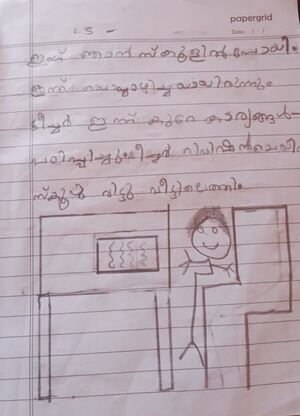 papergrid
Date: / /
25 -
ഇന്ന് ഞാൻ സ്കൂളിൽ പോയി.
ഇന്ന് ചൊവ്വാഴ്ച്ചയായിരുന്നും
ടീച്ചർ ഇന്ന് കുറേ കാര്യങ്ങൾ
പഠിപ്പിച്ചും ടീച്ചർ റിവിഷൻ ചെയ്തി.
സ്കൂൾ വിട്ടു വീട്ടിലെത്തി.